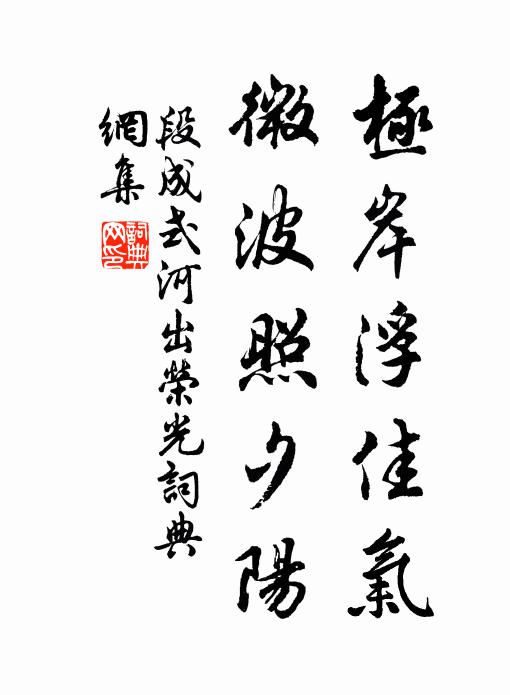 極岸浮佳氣
微波照夕陽
段成式河出榮光詞典
網集
詞典
网印